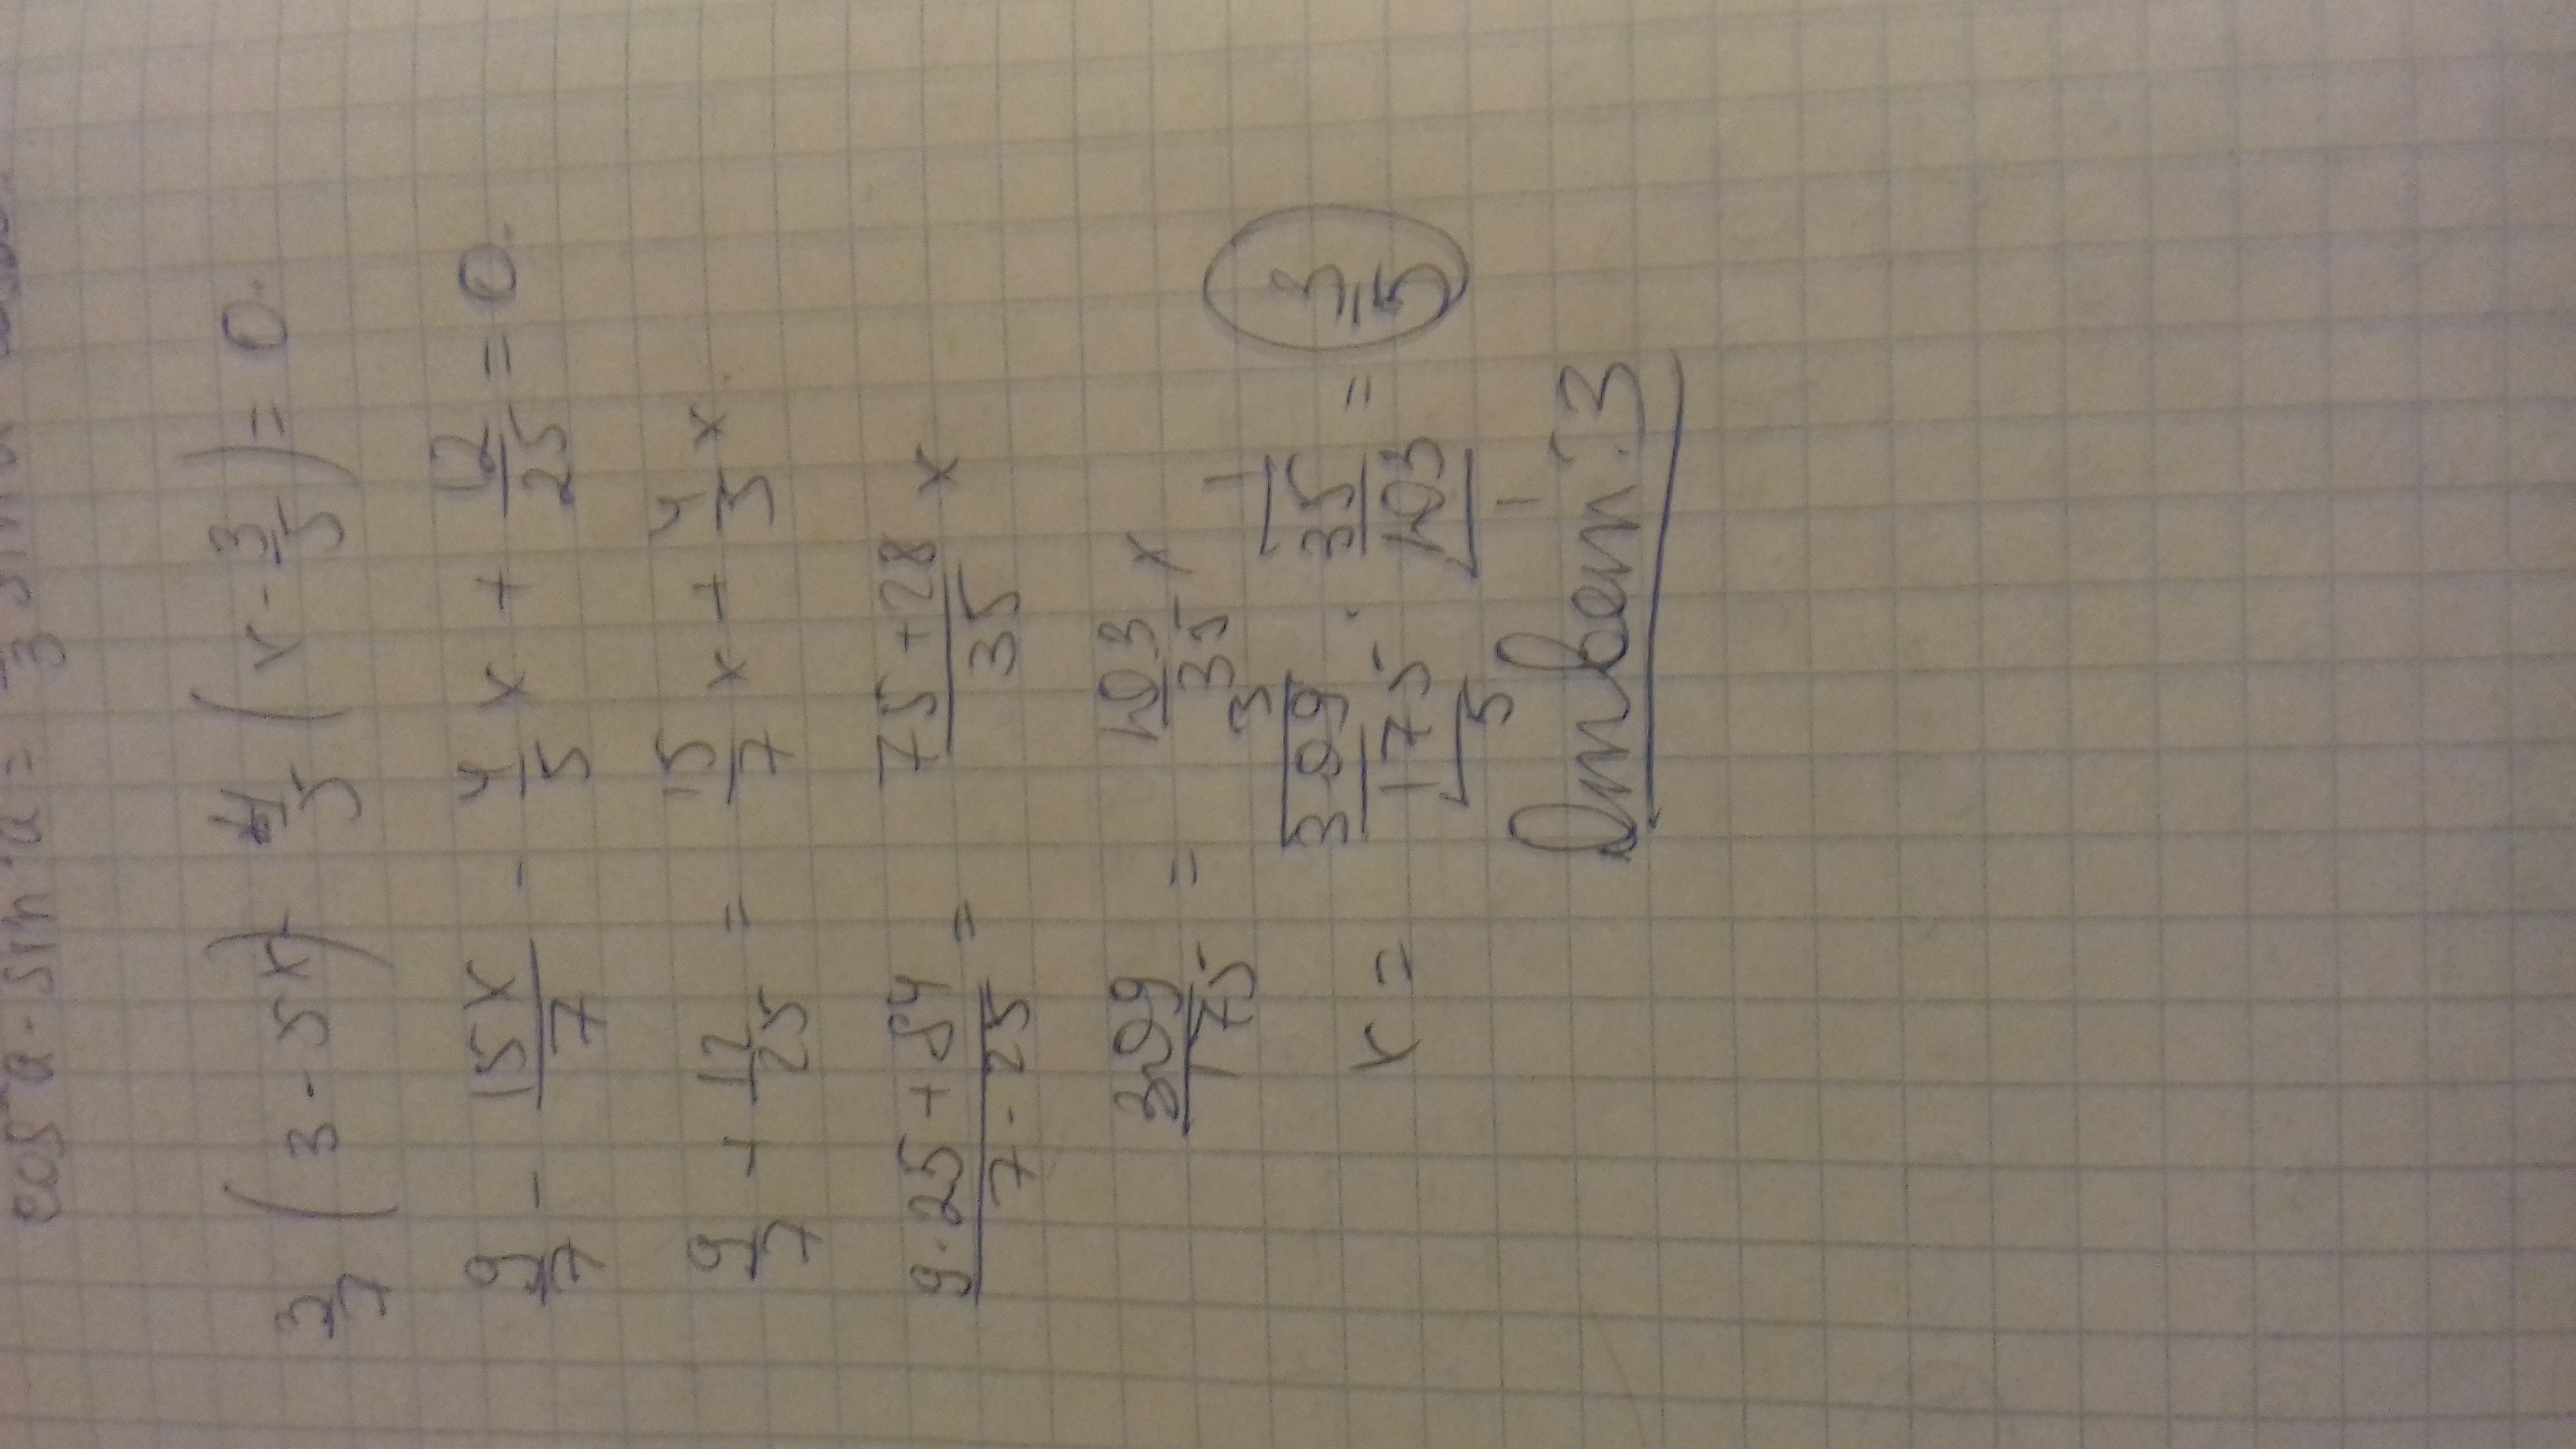 cos² a · sin² a =
3/7 (3 - 5x) - 4/5 (x - 3/5) = 0.
9/7 - 15x/7 - 4/5 x + 12/25 = 0.
9/7 + 12/25 = 15/7 x + 4/5 x.
9·25+84/7·25 = 75+28/35 x
309/175 = 103/35 x
x = 309/175 · 35/103 = 3/5
3 1
5 1
Ответ: 3